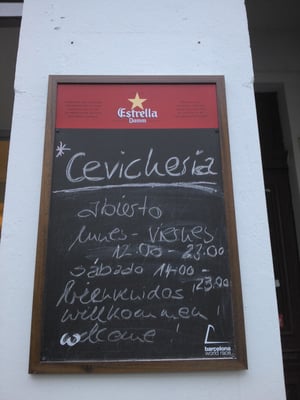 Estrella
Damm
*Cevicheria
abierto
lunes - viernes
12:00 - 23:00
sábado 14:00 -
23:00
Bienvenidos
willkommen!
welcome!
barcelona
world race